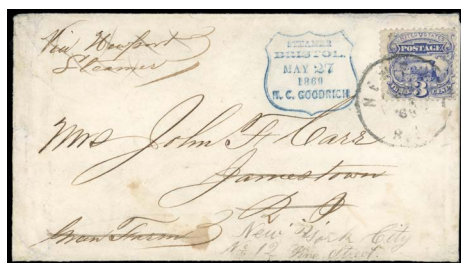 Via Newport
Steamer
STEAMER
BRISTOL.
MAY 27
1869
W. C. GOODRICH
POSTAGE
3
Mrs John F Carr
Jamestown
R I
New York City
No 12
Street